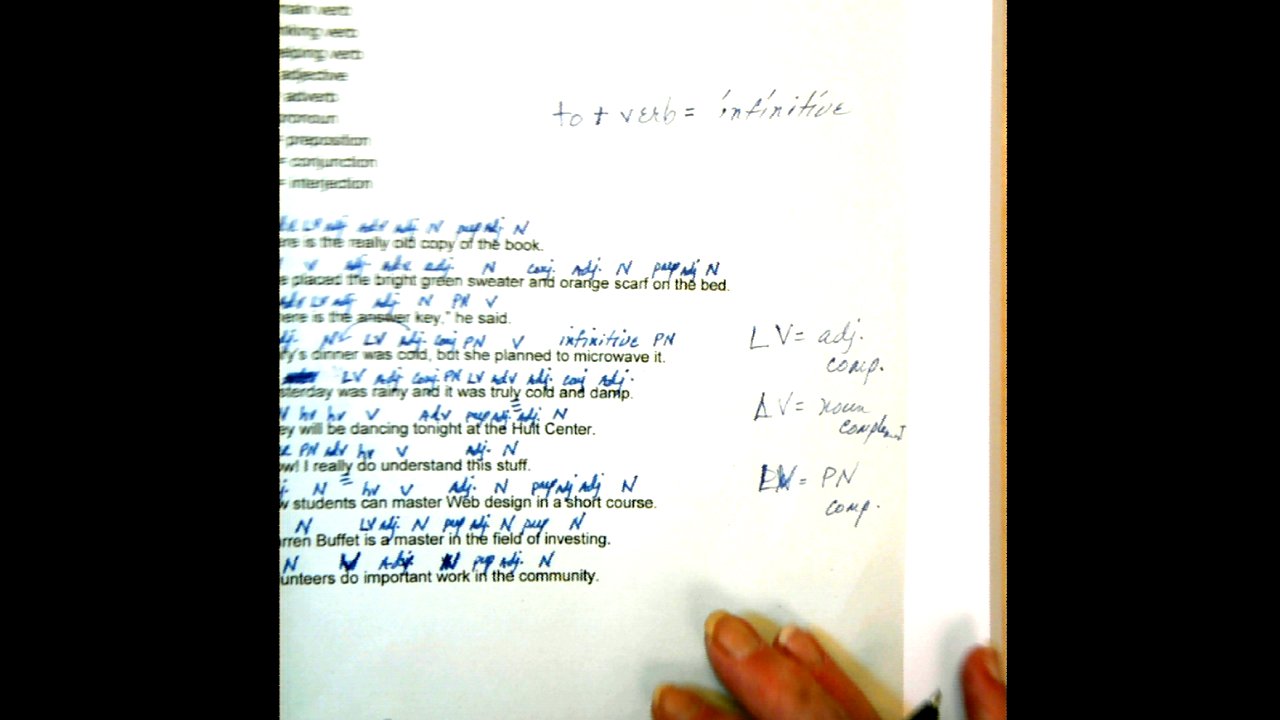 verb
verb
verb
adjective
adverb
= preposition
= conjunction
= interjection
to + verb = infinitive
LV adj adv adj N prep adj N
is the really old copy of the book.
V adj adv adj. N conj. Adj. N prep adj N
placed the bright green sweater and orange scarf on the bed.
adv LV adj adj N PN V
is the answer key," he said.
N LV adj conj PN V infinitive PN
dinner was cold, but she planned to microwave it.
LV adj. comp.
LV Adj conj PN LV adv Adj. conj Adj.
was rainy and it was truly cold and damp.
V = noun
hv hv V Adv prep adj. adj. N
will be dancing tonight at the Hult Center.
PN adv hv V adj. N
I really do understand this stuff.
= PN comp.
N hv V Adj. N prep adj adj N
students can master Web design in a short course.
N LV adj. N prep adj. N prep N
Buffet is a master in the field of investing.
N prep adj. N
do important work in the community.